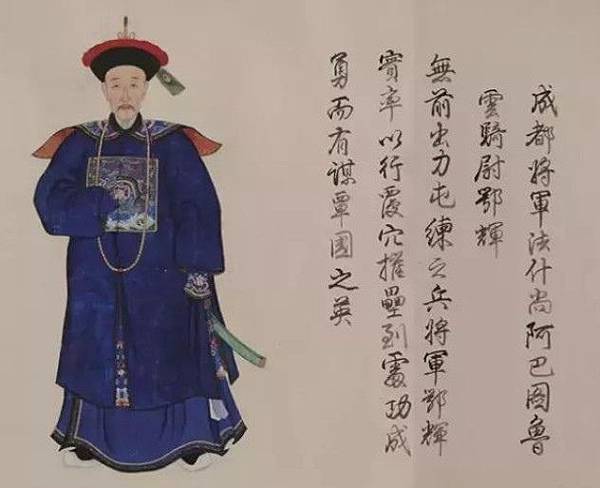 成都將軍法什尚阿巴圖魯
雲騎尉鄂輝
無前出力屯練之兵將軍鄂輝
實率以行覆穴摧壘到處功成
勇而有謀覃國之英